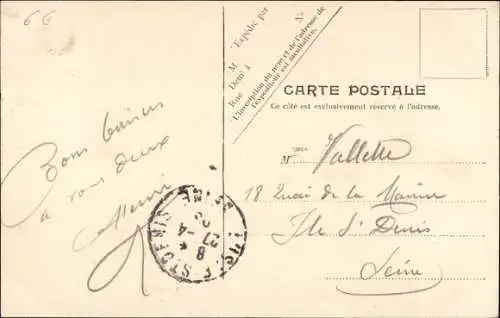 6 €
Bons baisers
à vous deux
Henri
Expédié par
M
Demt à
Rue
N°
L'inscription du nom et de l'adresse de
l'expéditeur est facultative.
CARTE POSTALE
Ce côté est exclusivement réservé à l'adresse.
M Vallette
18 Quai de la Marine
Ile St Denis
Seine
8
27-4
SEINE